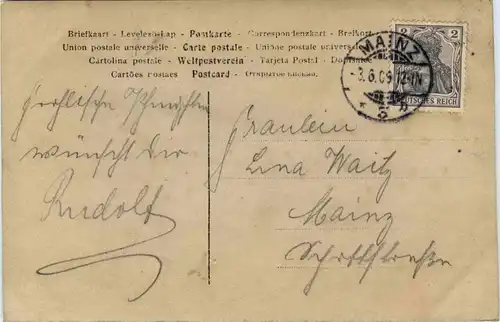 Briefkaart - Levelező-Lap - Postkarte - Correspondenzkart - Brefkort
Union postale universelle - Carte postale - Unione postale universale
Cartolina postale - Weltpostverein - Tarjeta Postal
Cartões postaes - Postcard - Открытое письмо.
2 2
MAINZ
3.6.09.
DEUTSCHES REICH
wünscht dir
Rudolf
Fräulein
Lina Waitz
Mainz